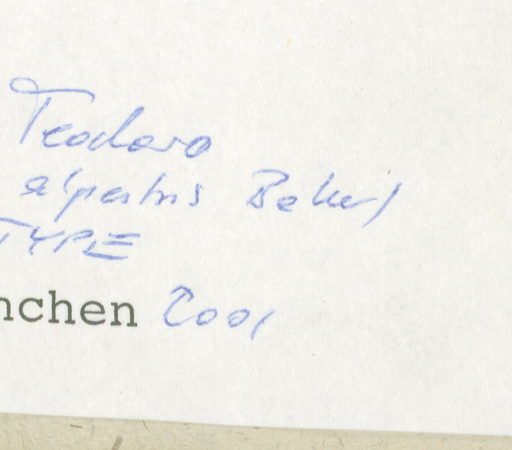 Teodoro
rupestris Baker
TYPE
nchen 2001